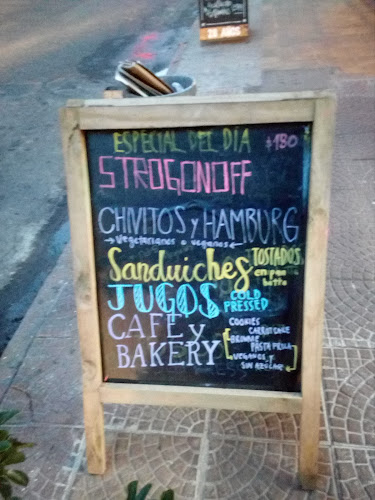 ESPECIAL DEL DIA $180
STROGONOFF
CHIVITOS y HAMBURG
vegetarianos o veganos
Sanduiches TOSTADOS
en pan
JUGOS COLD
PRESSED
CAFE y
BAKERY
COOKIES
CARROT CAKE
BROWNIE
PASTA FROLA
VEGANOS Y
SIN AZUCAR